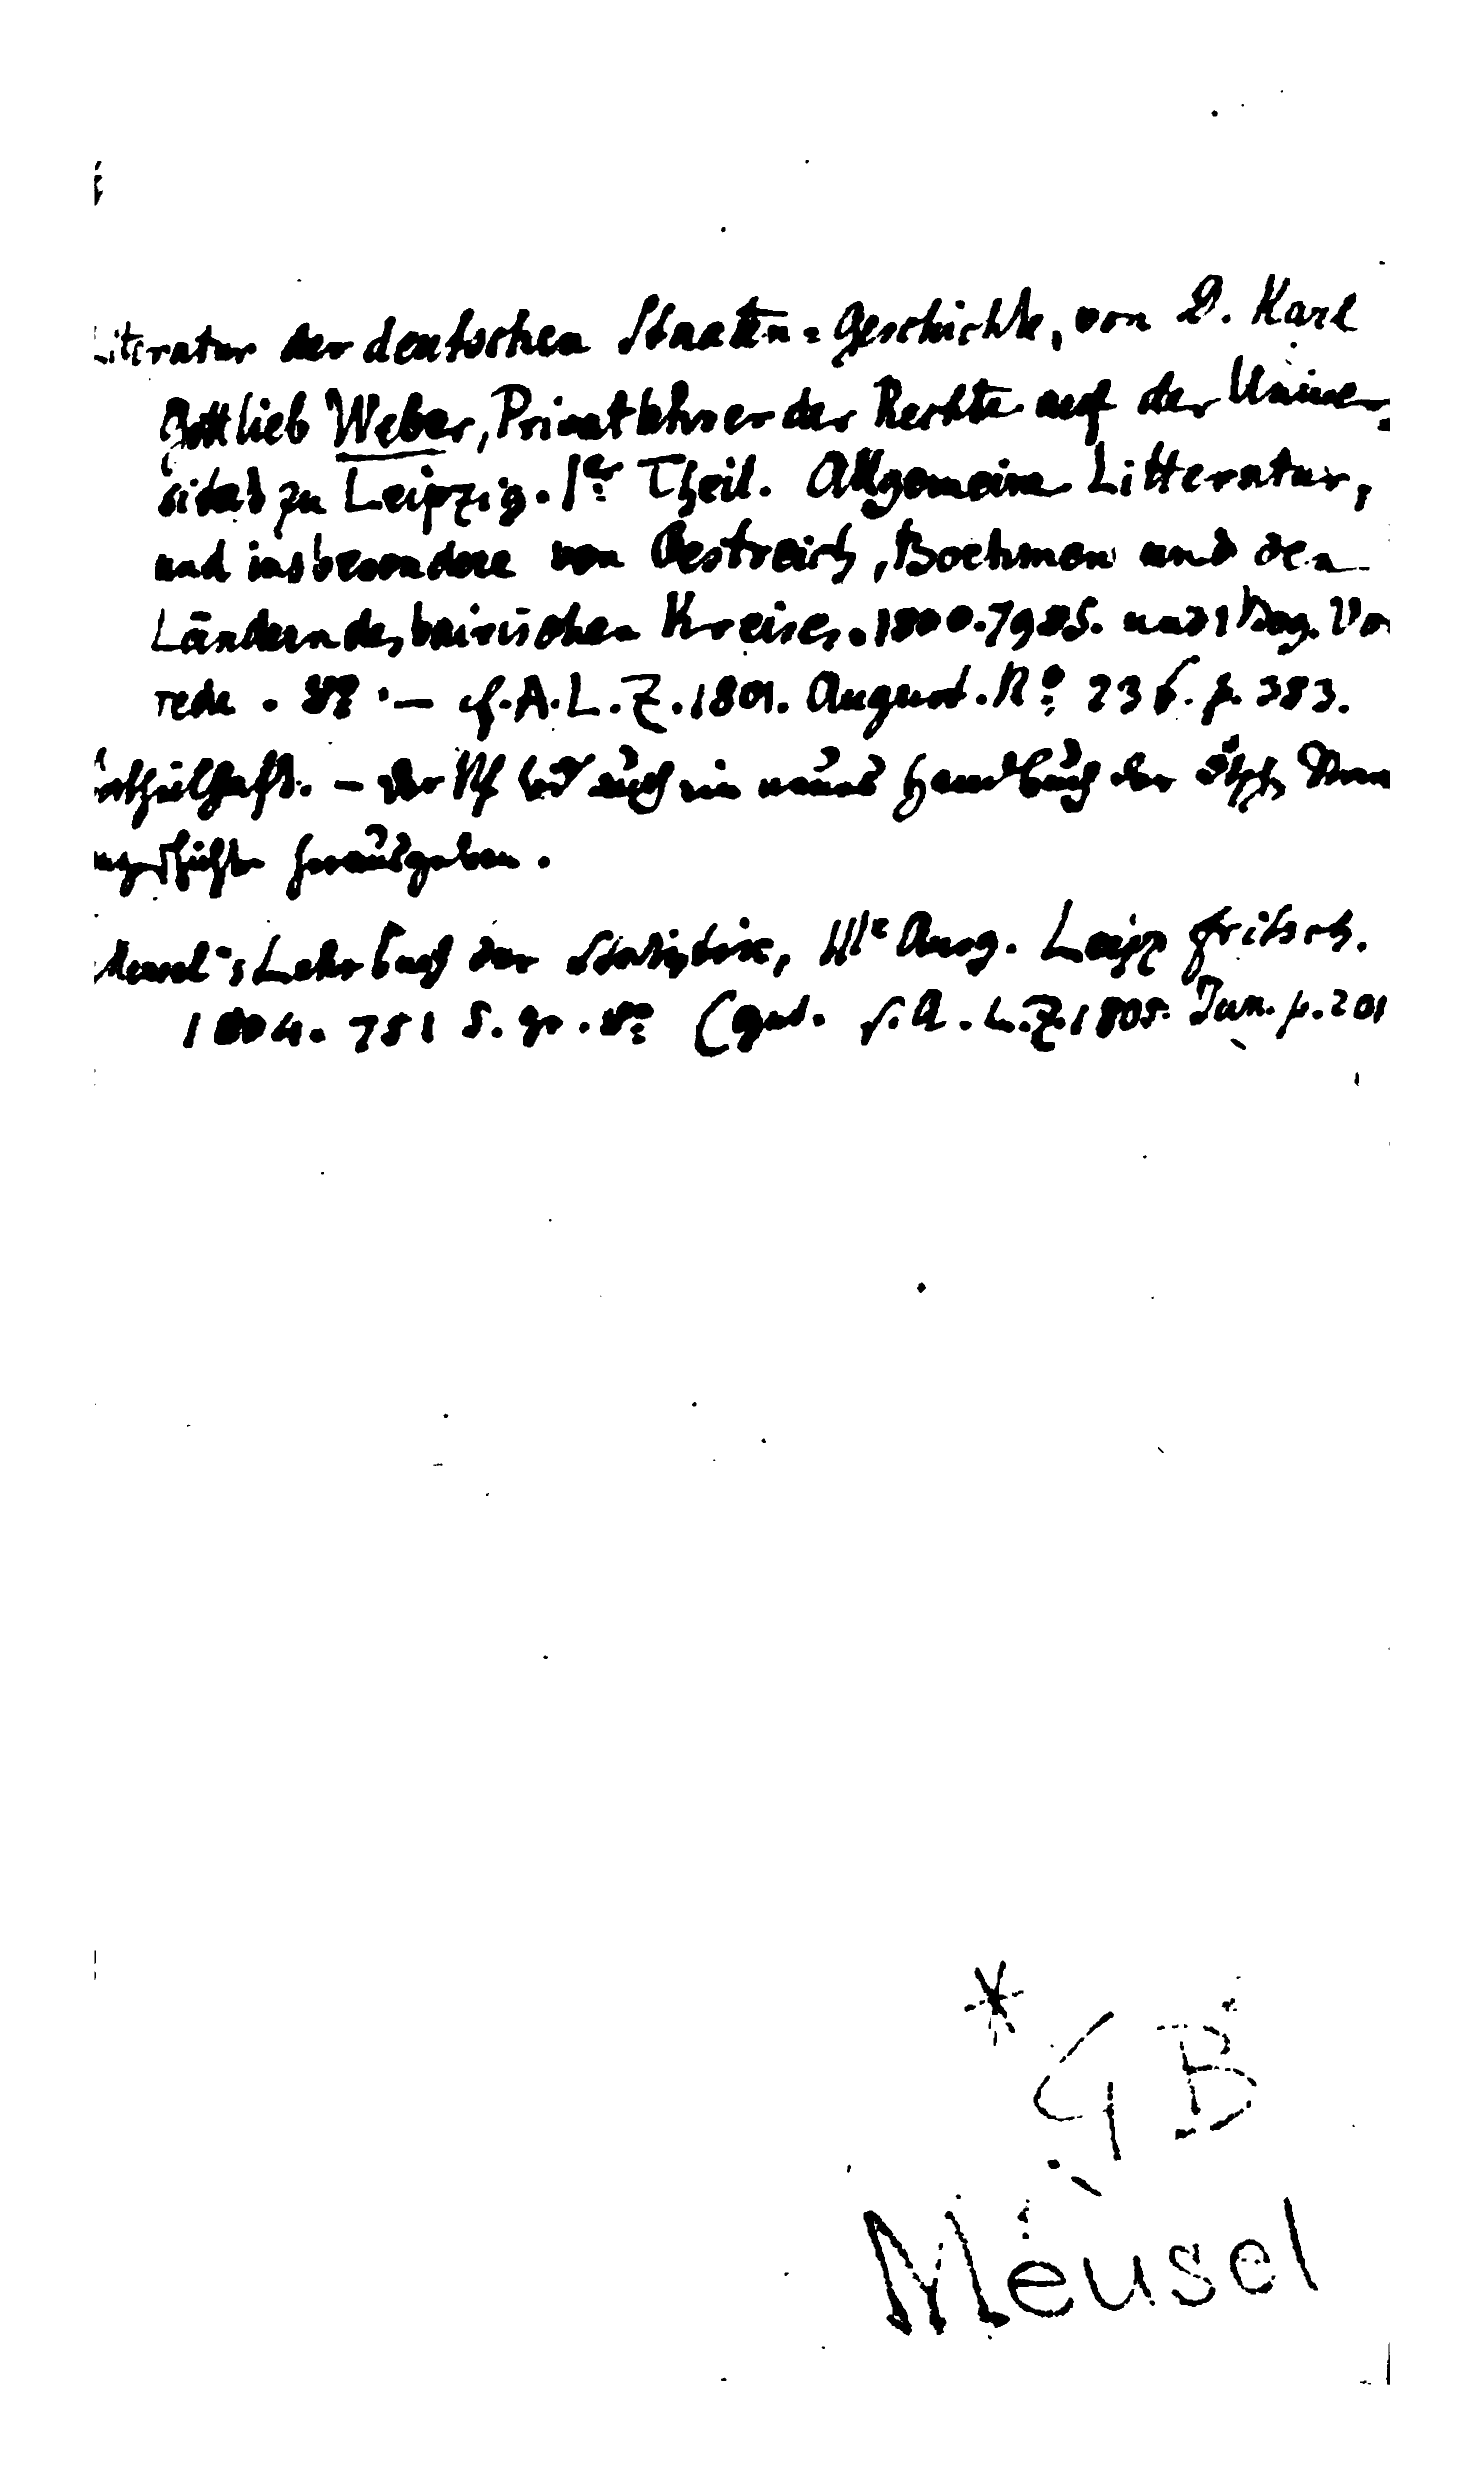 Literatur der deutschen Staaten=Geschichte, von D. Karl
Gottlieb Weber, Privatlehrer der Rechte auf der Univer-
sität zu Leipzig. 1er Theil. Allgemeine Litteratur,
und insbesondere von Oestreich, Boehmen und den
Ländern des bairischen Kreises. 1800. 798 S. und 1 Bog. Vor
rede. 8º. — cf. A. L. Z. 1801. August. Nº 236. p. 383.
– Der Vf wird auch ein neues Handbuch der
herausgeben.
Meusel's Lehrbuch der Statistik, IIIe Ausg. Leipz Fritsch.
1804. 751 S. gr. 8º (gut. s. A. L. Z. 1805. Jan. p. 201
* GB
Meusel